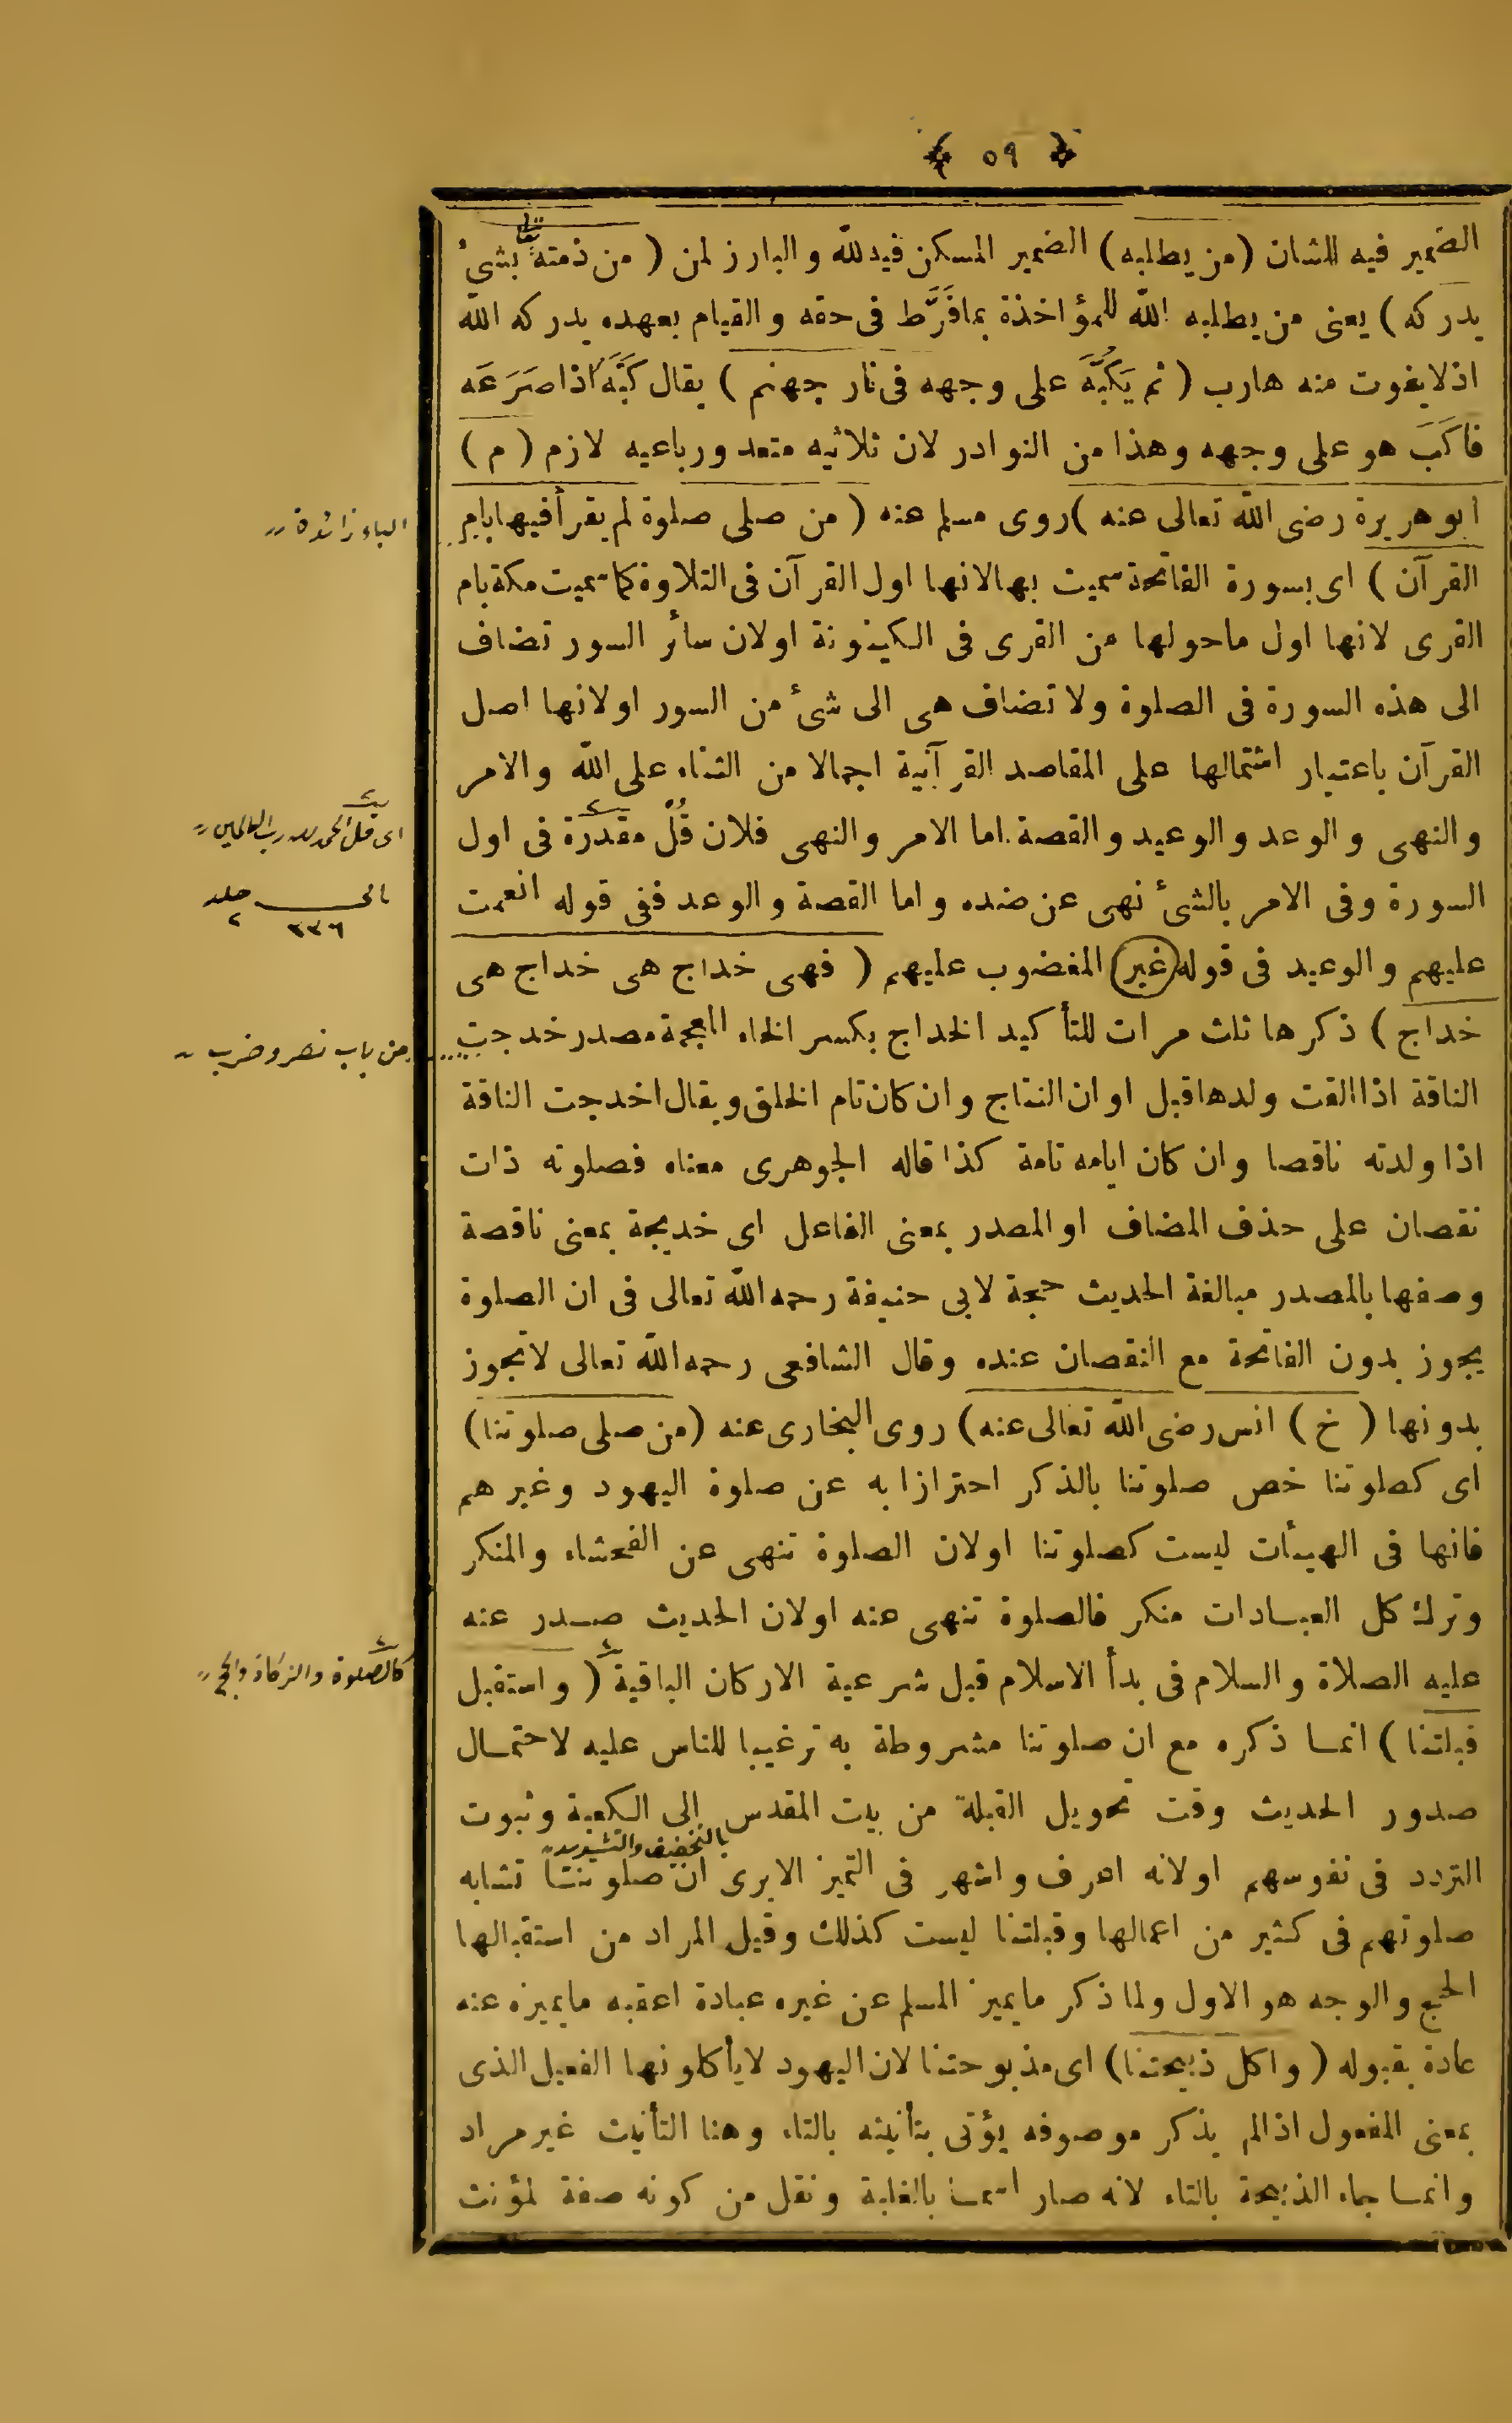 ﴿ ٥٩ ﴾
الضمير فيه للشان (من يطلبه) الضمير المسكن فيه لله والبارز لمن (من ذمته بشئ
يدركه) يعنى من يطلبه الله للمؤاخذة بما فَرَّط فى حقه والقيام بعهده يدركه الله
اذ لا يفوت منه هارب (ثم يَكُبَّه على وجهه فى نار جهنم) يقال كَبَّه اذا صَرَعَه
فاكَبَّ هو على وجهه وهذا من النوادر لان ثلاثيه متعد ورباعيه لازم (م)
ابو هريرة رضى الله تعالى عنه) روى مسلم عنه (من صلى صلوة لم يقرأ فيها بام
الباء زائدة
القرآن) اى بسورة الفاتحة سميت بها لانها اول القرآن فى التلاوة كما سميت مكة بام
القرى لانها اول ما حولها من القرى فى الكينونة او لان سائر السور تضاف
الى هذه السورة فى الصلوة ولا تضاف هى الى شئ من السور او لانها اصل
القرآن باعتبار اشتمالها على المقاصد القرآنية اجمالا من الثناء على الله والامر
والنهى والوعد والوعيد والقصة اما الامر والنهى فلان قُلْ مقدرة فى اول
اى قل الحمد لله رب العالمين
السورة وفى الامر بالشئ نهى عن ضده واما القصة والوعد ففى قوله انعمت
جلد ٢ ٣٣٦
عليهم والوعيد فى قوله غير المغضوب عليهم (فهى خداج هى خداج هى
خداج) ذكرها ثلث مرات للتأكيد الخداج بكسر الخاء المعجمة مصدر خدجت
من باب نصر وضرب
الناقة اذا القت ولدها قبل اوان النتاج وان كان تام الخلق ويقال اخدجت الناقة
اذا ولدته ناقصا وان كان ايامه تامة كذا قاله الجوهرى معناه فصلوته ذات
نقصان على حذف المضاف او المصدر بمعنى الفاعل اى خديجة بمعنى ناقصة
وصفها بالمصدر مبالغة الحديث حجة لابى حنيفة رحمه الله تعالى فى ان الصلوة
يجوز بدون الفاتحة مع النقصان عنده وقال الشافعى رحمه الله تعالى لا تجوز
بدونها (خ) انس رضى الله تعالى عنه) روى البخارى عنه (من صلى صلوتنا)
اى كصلوتنا خص صلوتنا بالذكر احترازا به عن صلوة اليهود وغيرهم
فانها فى الهيأت ليست كصلوتنا او لان الصلوة تنهى عن الفحشاء والمنكر
وترك كل العبادات منكر فالصلوة تنهى عنه او لان الحديث صدر عنه
عليه الصلاة والسلام فى بدأ الاسلام قبل شرعية الاركان الباقية (واستقبل
كالصلوة والزكاة والحج
قبلتنا) انما ذكره مع ان صلوتنا مشروطة به ترغيبا للناس عليه لاحتمال
صدور الحديث وقت تحويل القبلة من بيت المقدس الى الكعبة وثبوت
بالتخفيف والتشديد
التردد فى نفوسهم او لانه اعرف واشهر فى التميز الا يرى ان صلوتنا تشابه
صلوتهم فى كثير من اعمالها وقبلتنا ليست كذلك وقيل المراد من استقبالها
الحج والوجه هو الاول ولما ذكر ما يميز المسلم عن غيره عبادة اعقبه ما يميزه عنه
عادة بقوله (واكل ذبيحتنا) اى مذبوحتنا لان اليهود لا يأكلونها الفعيل الذى
بمعنى المفعول اذا لم يذكر موصوفه يؤتى بتأنيثه بالتاء وهنا التأنيث غير مراد
وانما جاء الذبيحة بالتاء لانه صار اسما بالغلبة ونقل من كونه صفة لمؤنث